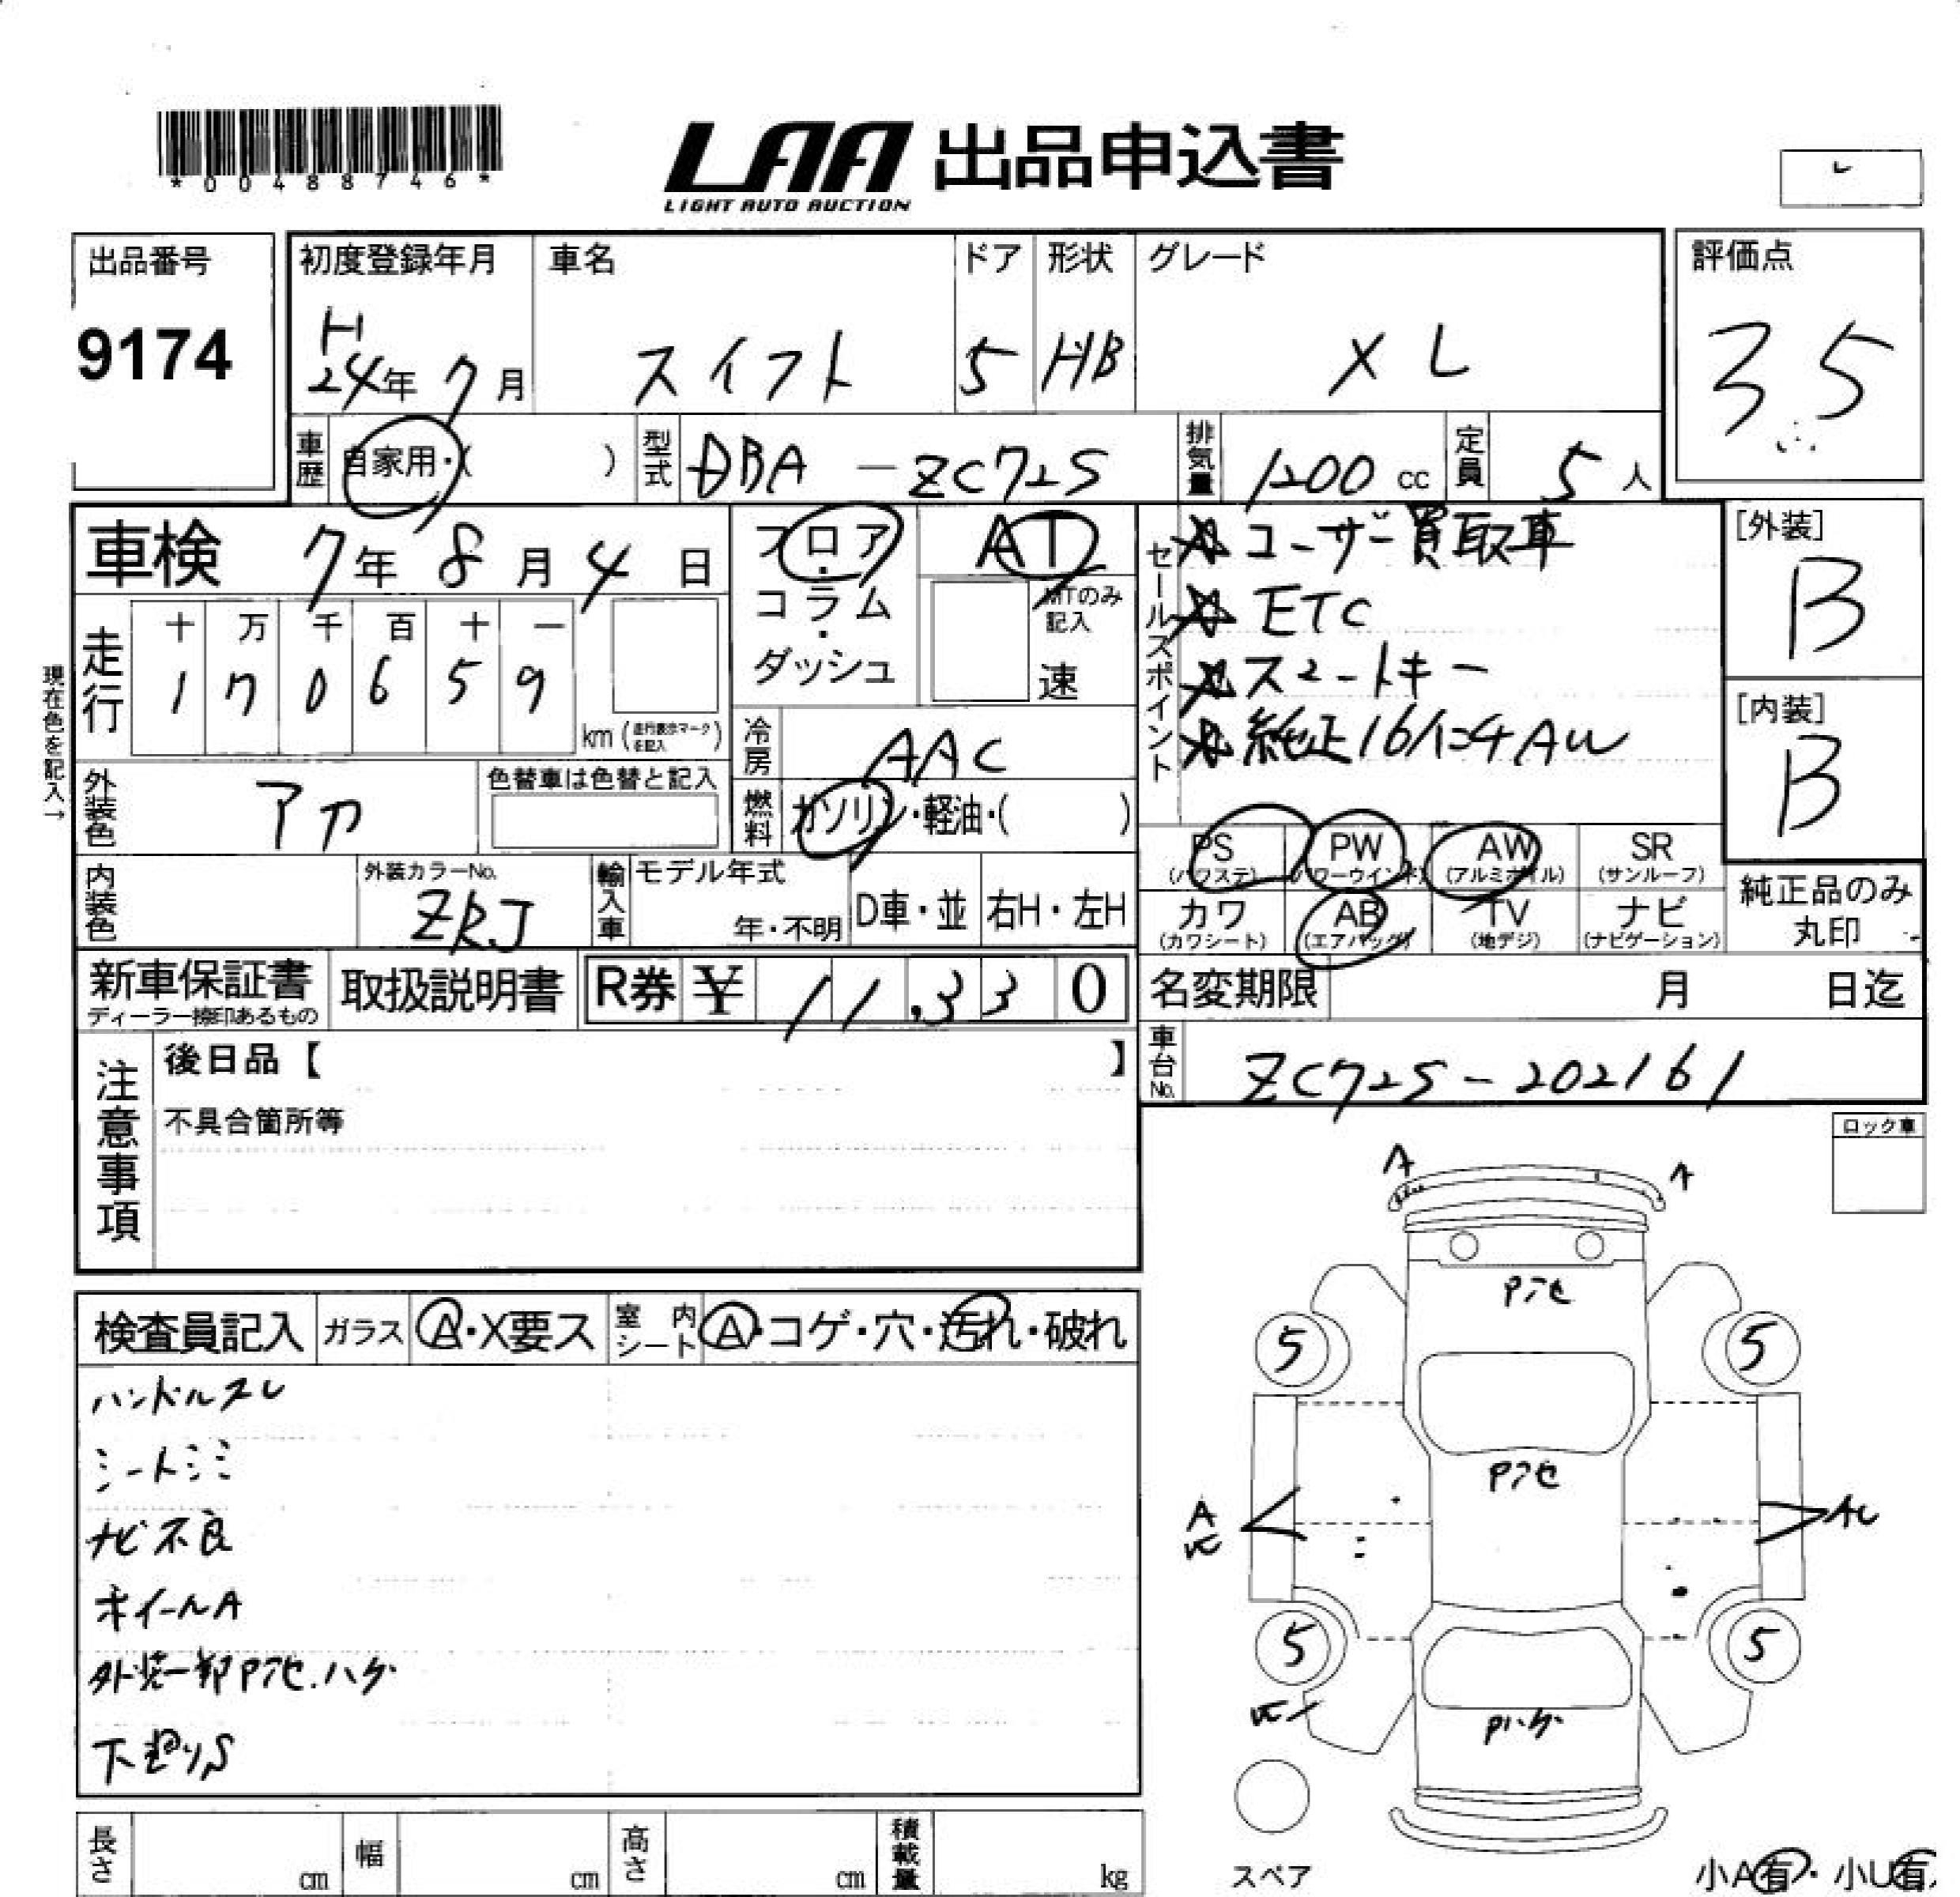 *00488746*
LAA 出品申込書
LIGHT AUTO AUCTION
出品番号
9174
初度登録年月
H
24年 7月
車名
スイフト
ドア
5
形状
HB
グレード
XL
評価点
3.5
車歴
自家用・( )
型式
DBA-ZC72S
排気量
1200 cc
定員
5 人
車検 7年 8月 4日
走行
十 万 千 百 十 一
1 7 0 6 5 9
km (走行表示マークを記入)
現在色を記入→
フロア・コラム・ダッシュ
AT
MTのみ記入
速
セールスポイント
☆ユーザー買取車
☆ETC
☆スマートキー
☆純正16インチAW
[外装]
B
[内装]
B
冷房
AAC
外装色
アカ
色替車は色替と記入
燃料
ガソリン・軽油・( )
PS
(パワステ)
PW
(パワーウインド)
AW
(アルミホイル)
SR
(サンルーフ)
カワ
(カワシート)
AB
(エアバッグ)
TV
(地デジ)
ナビ
(ナビゲーション)
純正品のみ
丸印
内装色
外装カラーNo.
ZRJ
輸入車
モデル年式
年・不明
D車・並
右H・左H
新車保証書
ディーラー捺印あるもの
取扱説明書
R券 ¥ 11,330
名変期限 月 日迄
車台No.
ZC72S-202161
注意事項
後日品【 】
不具合箇所等
ロック車
A
A
Pアセ
5
5
Pアセ
A
AU
5
5
Pハゲ
スペア
小A有・小U有
検査員記入
ガラス
A・X要ス
室内シート
A・コゲ・穴・汚れ・破れ
ハンドルスレ
シートシミ
ナビ不良
ホイールA
外装一部Pアセ.ハゲ
下廻りS
長さ cm
幅 cm
高さ cm
積載量 kg